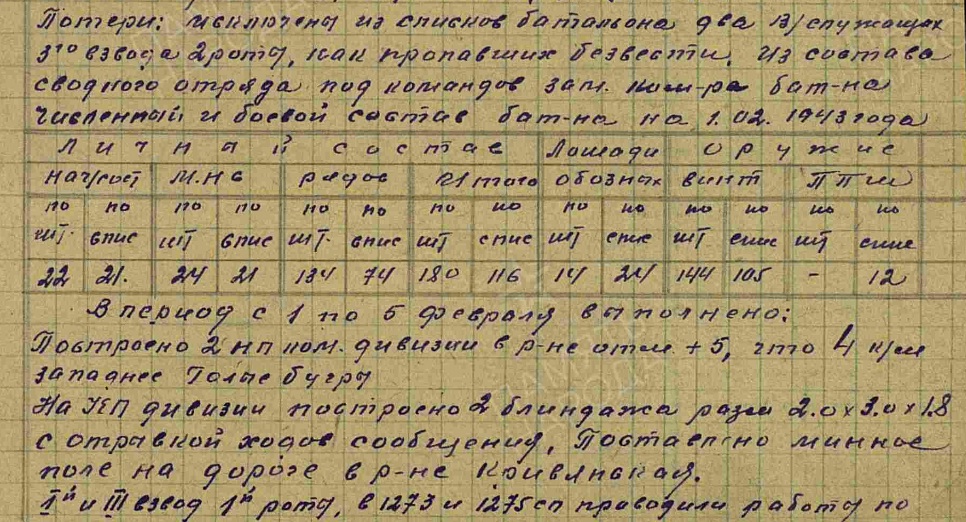 Потери: исключены из списков батальона два в/служащих
3го взвода 2 роты, как пропавших безвести. Из состава
сводного отряда под командов зам. ком-ра бат-на
Численный и боевой состав бат-на на 1.02. 1943 года
Личный состав Лошади оружие
нач/сост М.Н.С рядов Итого обозных винт ППШ
по по по по по по по по по по по по по по
шт. спис шт спис шт. спис шт спис шт спис шт спис шт спис
22 21. 24 21 134 74 180 116 14 24 144 105 - 12
В период с 1 по 5 февраля выполнено:
Построено 2 нп ком. дивизии в р-не отм + 5, что 4 к/м
западнее Голые бугры
На КП дивизии построено 2 блиндажа разм 2.0 х 3.0 х 1.8
с отрывкой ходов сообщения, Поставлено минное
поле на дороге в р-не Кривянская.
Iй и III взвод 1й роты, в 1273 и 1275 сп проводили работы по